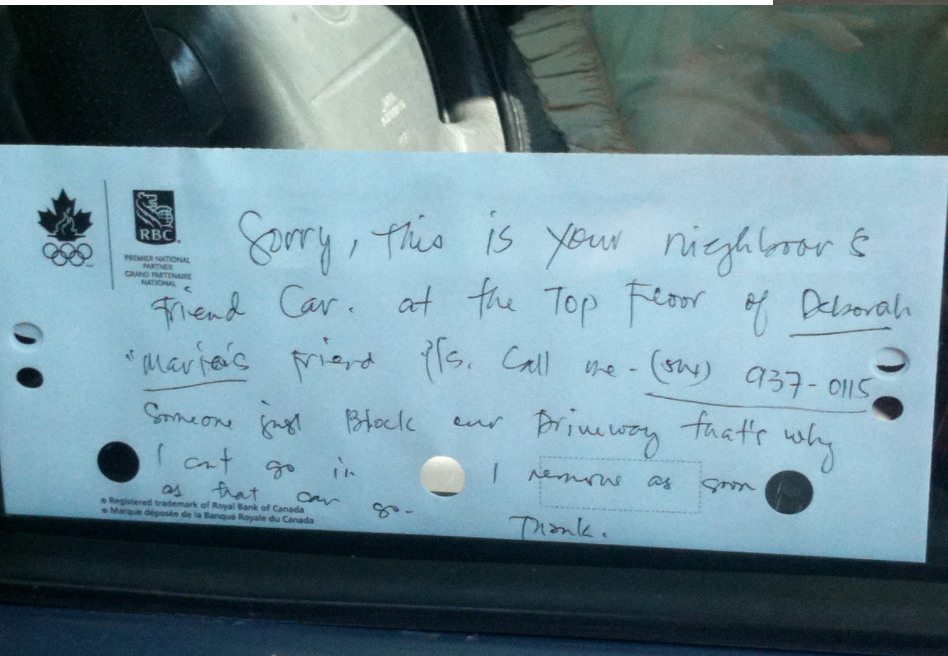 RBC
PREMIER NATIONAL
PARTNER
GRAND PARTENAIRE
NATIONAL
Sorry, this is your nighbour's
Friend Car. at the Top Floor of Deborah
"Maria's friend Pls. Call me - (514) 937-0115
Someone just Block our Driveway that's why
I can't go in I remove as soon
as that car go-
Thank.
Registered trademark of Royal Bank of Canada
Marque déposée de la Banque Royale du Canada